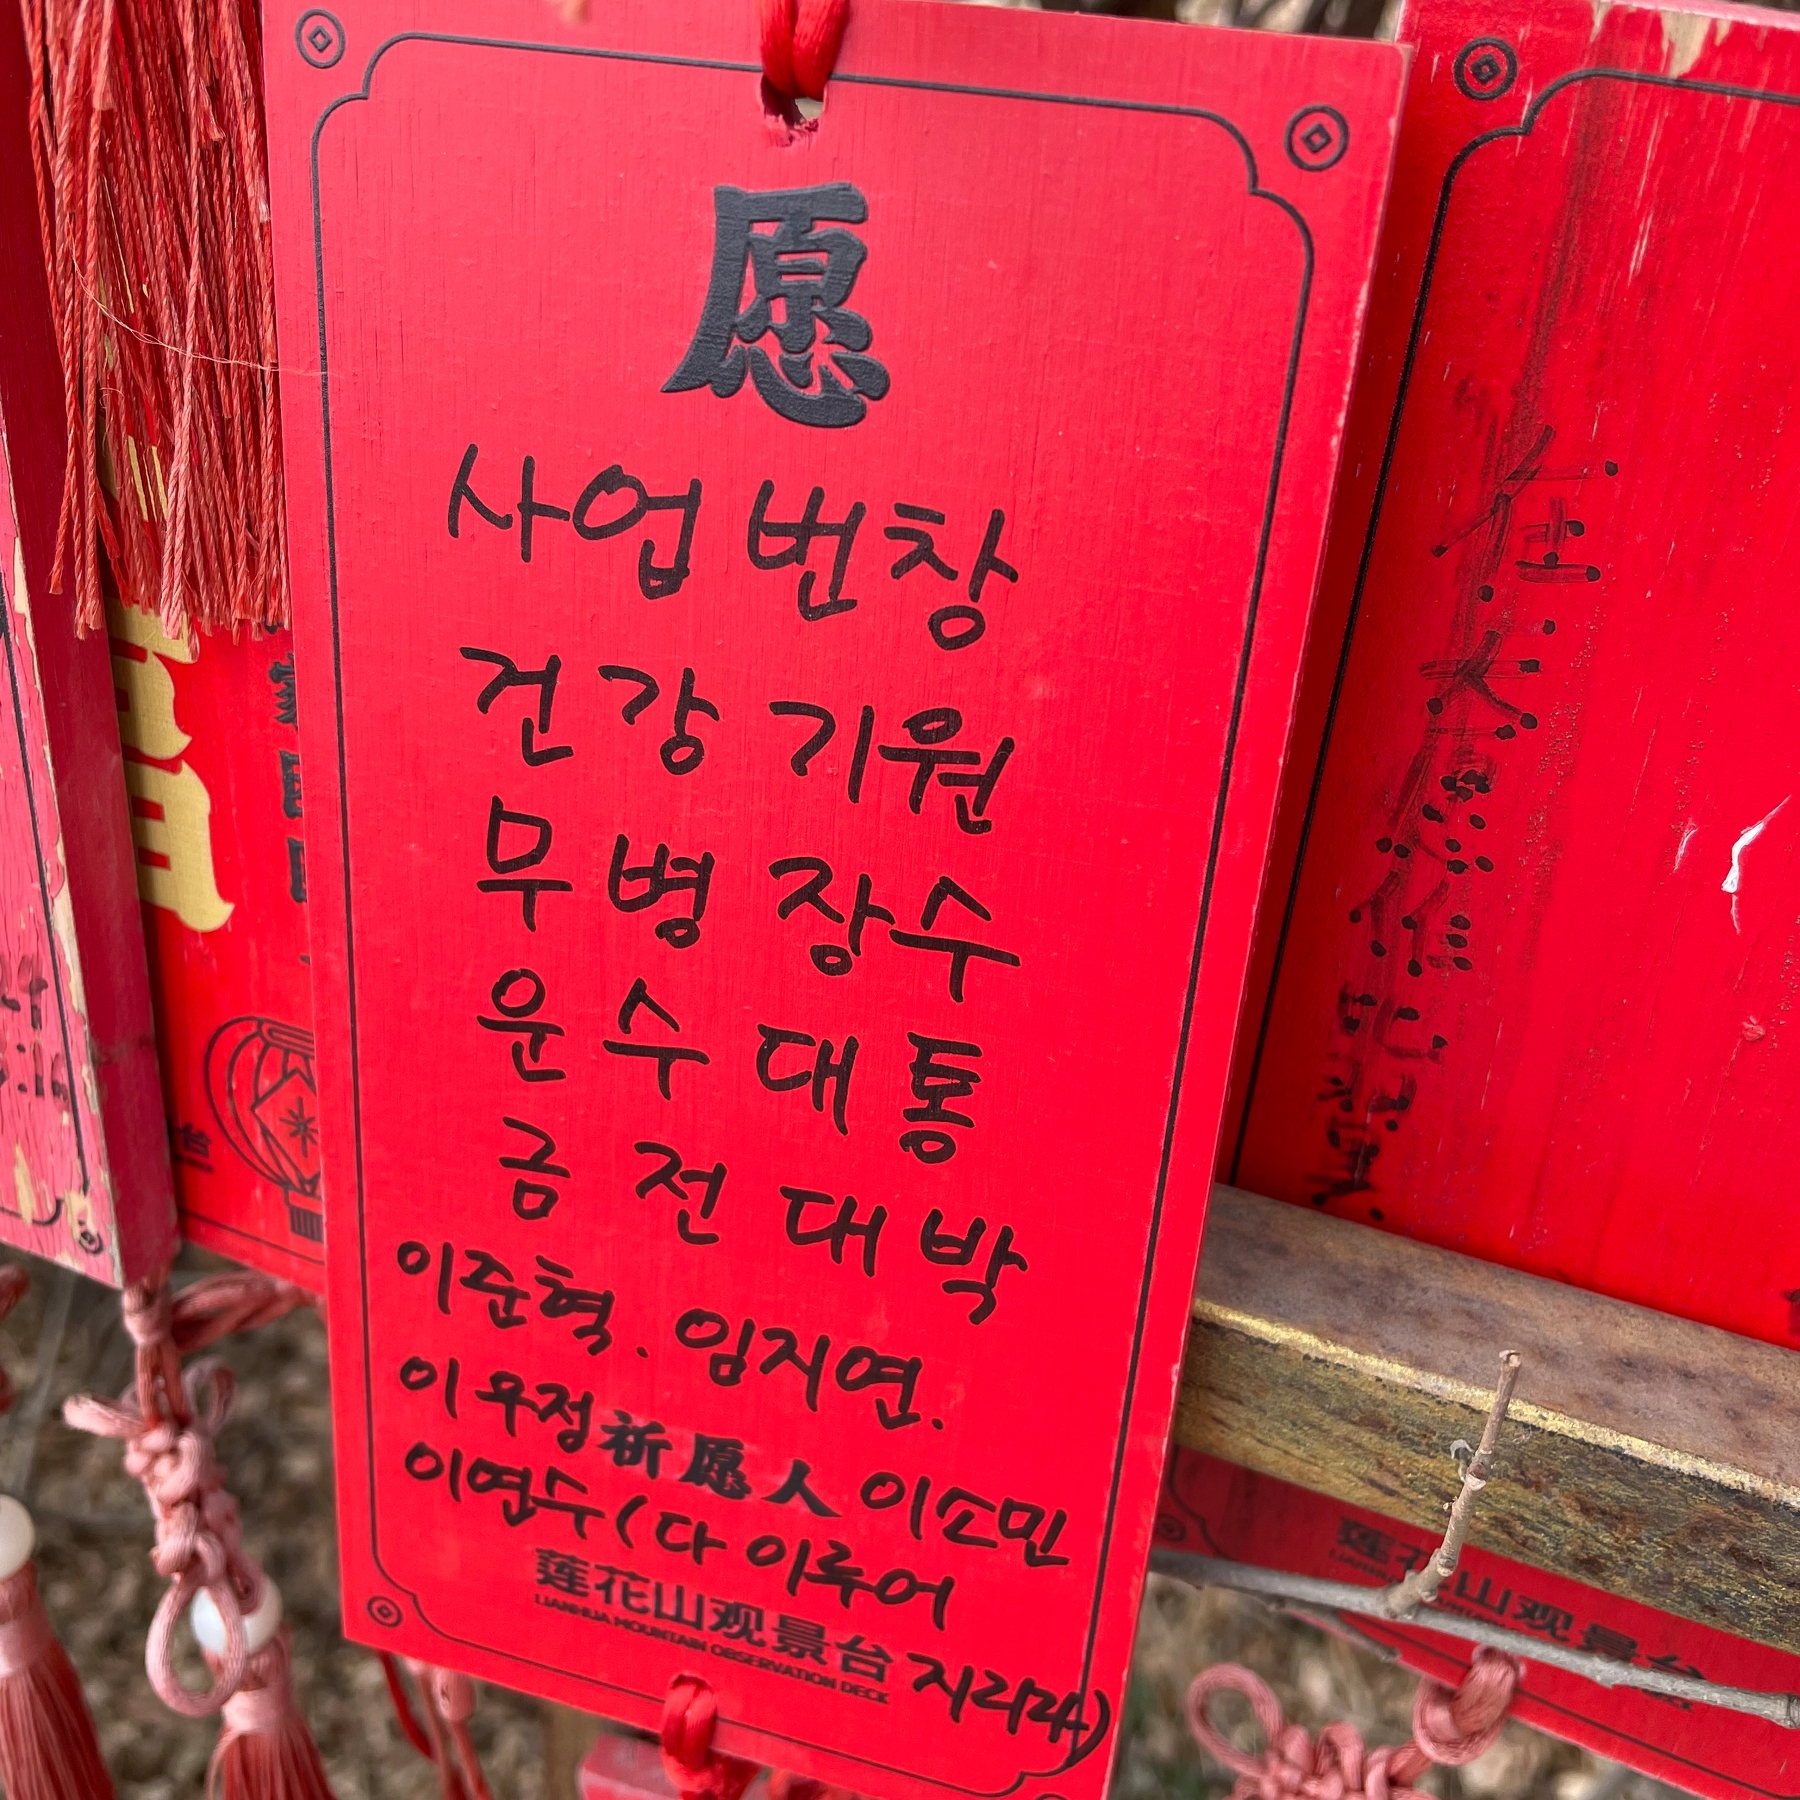 愿
사업 번창
건강 기원
무병 장수
운수 대통
금전 대박
이준혁. 임지연.
이우정 祈愿人 이소민
이연수 (다 이루어
莲花山观景台 지리라)
LIANHUA MOUNTAIN OBSERVATION DECK
莲花山观景台